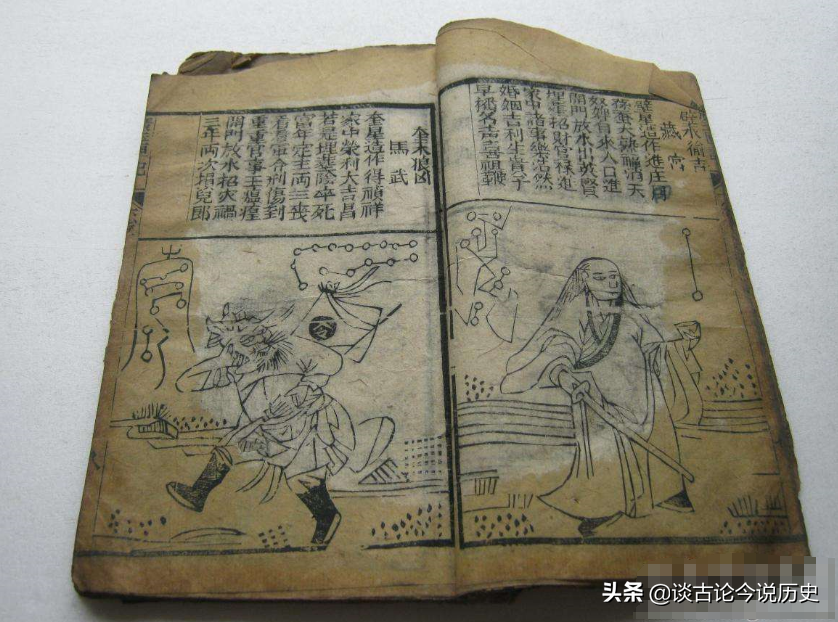 壁水㺄吉
臧宮
壁星造作進庄田
絲蚕大熟福滔天
奴婢自來人口進
開門放水出英賢
埋葬招財官祿進
家中諸事樂陶然
婚姻吉利生貴子
早播名吉祖鞭
奎木狼凶
馬武
奎星造作得禎祥
家中榮利大吉昌
若是埋葬陰卒死
當年定主兩三喪
看看軍令刑傷到
重重官事主瘟㾮
開門放水招災禍
三年兩次損兒郎
头条 @谈古论今说历史